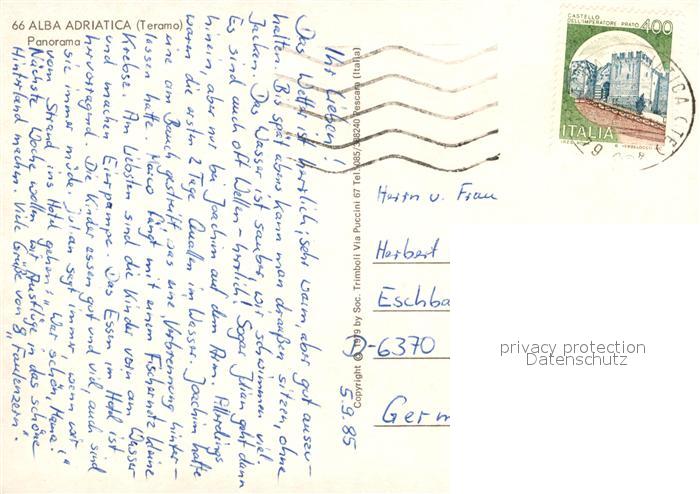 66 ALBA ADRIATICA (Teramo)
Panorama
Ihr Lieben!
Das Wetter ist herrlich, sehr warm, aber gut auszu-
halten. Bis spät abens kann man draußen sitzen, ohne
Jacken. Das Wasser ist sauber, wir schwimmen viel.
Es sind auch oft Wellen - herrlich! Sogar Julian geht dann
hinein, aber nur bei Joachim auf dem Arm. Allerdings
waren die ersten 2 Tage Quallen im Wasser. Joachim hatte
eine am Bauch gestreift, was eine Verbrennung hinter-
lassen hatte. Marco fängt mit einem Fischernetz kleine
Krebse. Am Liebsten sind die Kinder vorn am Wasser
und machen Eierpampe. Das Essen im Hotel ist
hervorragend. Die Kinder essen gut und viel, auch sind
sie immer müde. Julian sagt immer, wenn wir
vom Strand ins Hotel gehen: "War schön, Mama."
Nächste Woche wollen wir Ausflüge in das schöne
Hinterland machen. Viele Grüße von 8 "Faulenzern".
5.9.85
Copyright © 1979 by Soc. Trimboli Via Puccini 67 Tel. 085/388240 Pescara (Italia)
CASTELLO
DELL'IMPERATORE PRATO
400
ITALIA
Herrn u. Frau
Herbert
Eschba
D-6370
Germ
privacy protection
Datenschutz